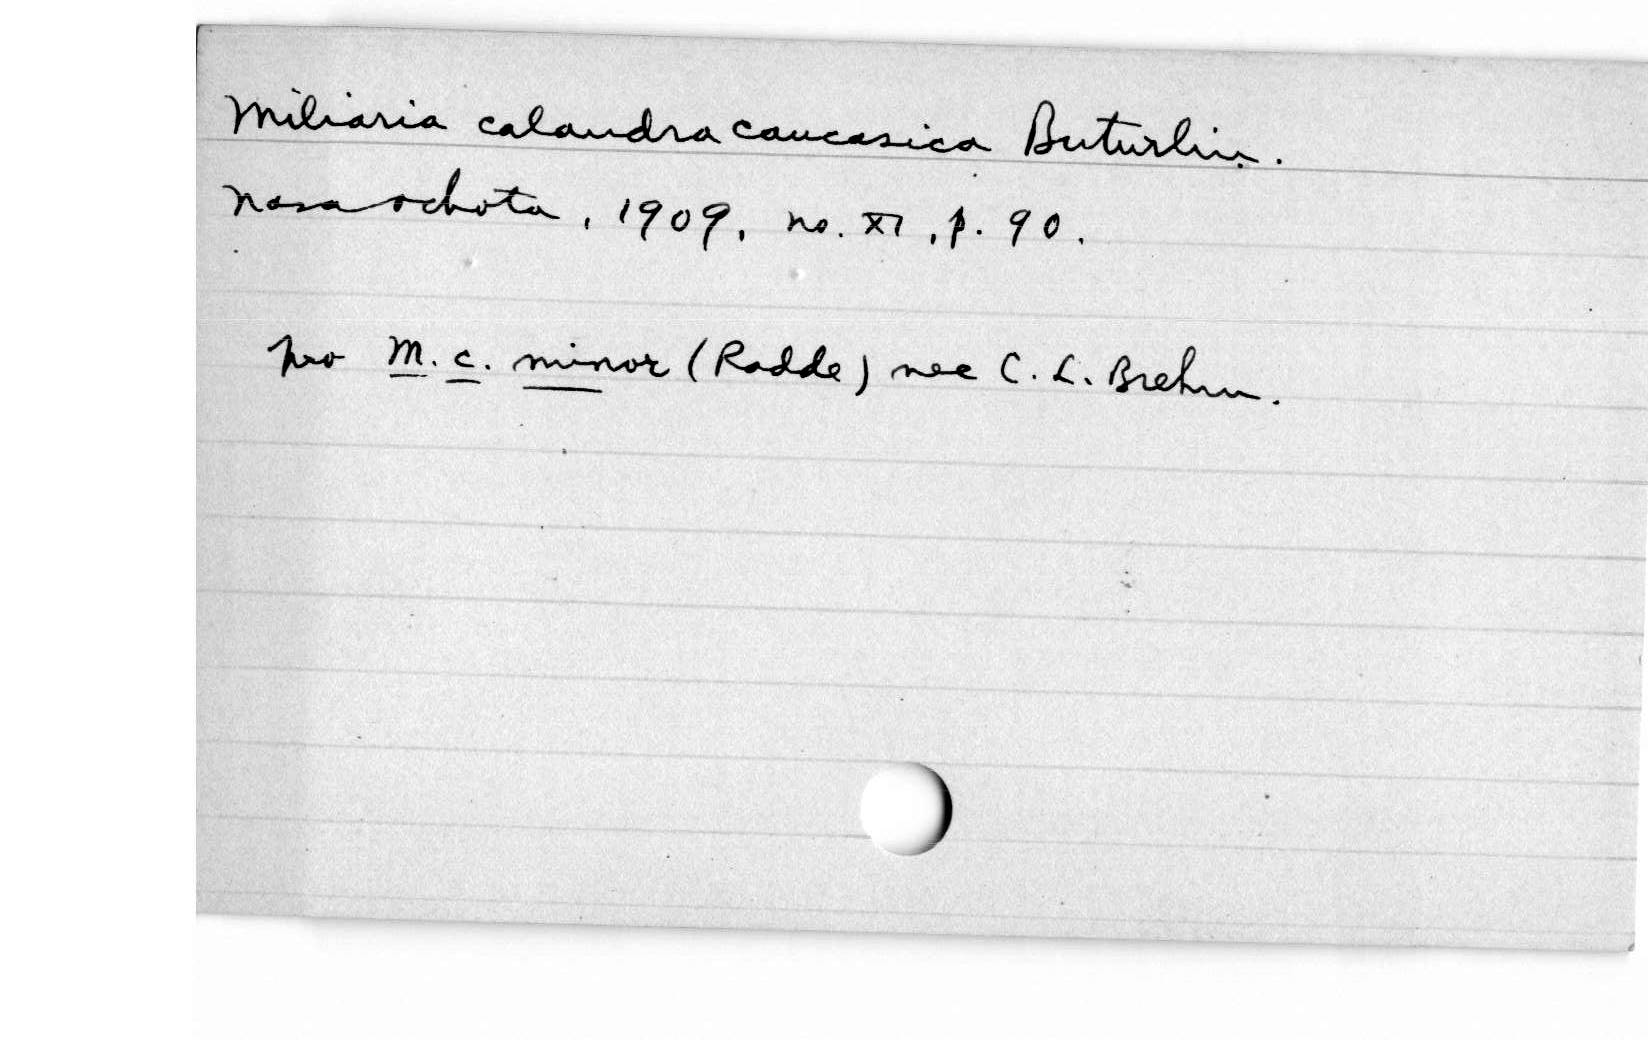 Miliaria calandra caucasica Buturlin.
Nasa ochota, 1909, no. XI, p. 90.
pro M. c. minor (Radde) nec C. L. Brehm.